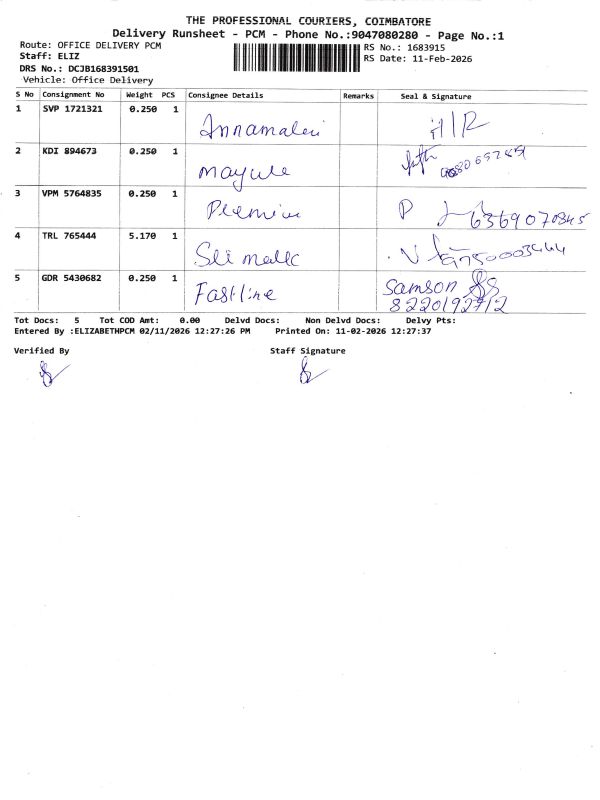 THE PROFESSIONAL COURIERS, COIMBATORE
Delivery Runsheet - PCM - Phone No.:9047080280 - Page No.:1
Route: OFFICE DELIVERY PCM
RS No.: 1683915
Staff: ELIZ
RS Date: 11-Feb-2026
DRS No.: DCJB168391501
Vehicle: Office Delivery
S No Consignment No Weight PCS Consignee Details Remarks Seal & Signature
1 SVP 1721321 0.250 1 Annamalai
2 KDI 894673 0.250 1
3 VPM 5764835 0.250 1 Premium P 6369070845
4 TRL 765444 5.170 1
5 GDR 5430682 0.250 1 Fastline Samson
8220192712
Tot Docs: 5 Tot COD Amt: 0.00 Delvd Docs: Non Delvd Docs: Delvy Pts:
Entered By :ELIZABETHPCM 02/11/2026 12:27:26 PM Printed On: 11-02-2026 12:27:37
Verified By Staff Signature